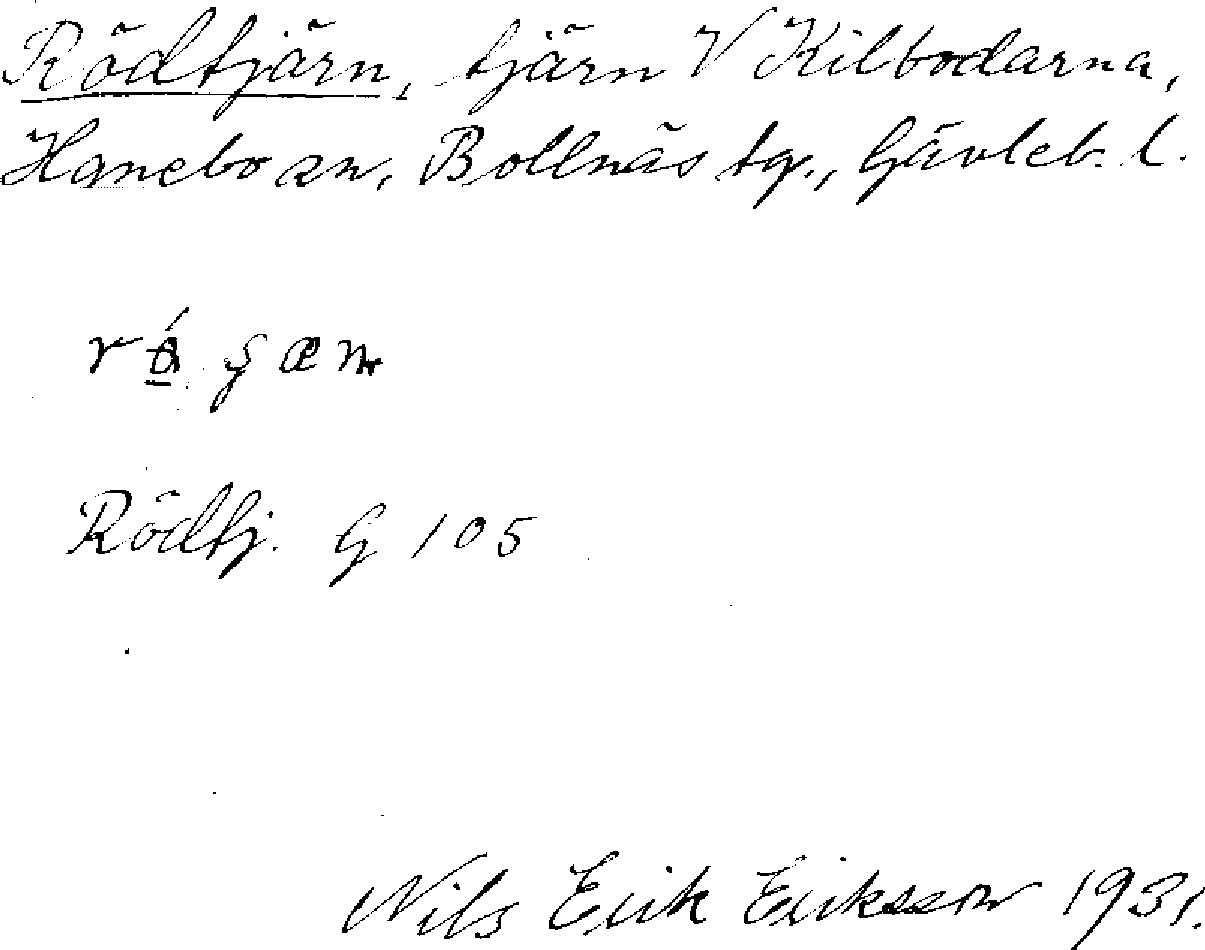 Rödtjärn, tjärn V Kilbodarna,
Hanebo sn, Bollnäs tg., Gävleb. l.
Rödtj. G 105
Nils Erik Eriksson 1931.